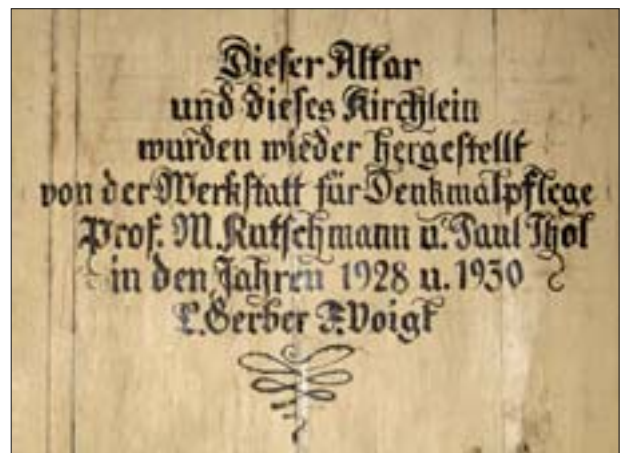 Dieser Altar
und dieses Kirchlein
wurden wieder hergestellt
von der Werkstatt für Denkmalpflege
Prof. M. Kutschmann u. Paul Thol
in den Jahren 1928 u. 1930
L. Gerber F. Voigt